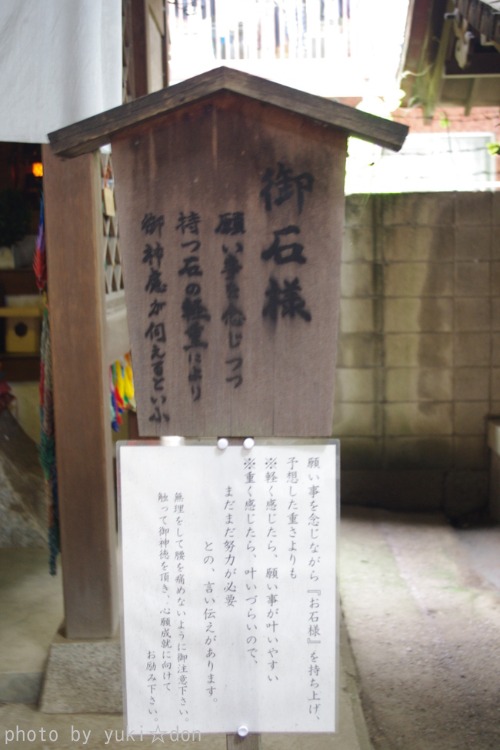 御石様
願い事を念じつつ
持つ石の軽重により
御神慮が伺えるといふ
願い事を念じながら『お石様』を持ち上げ、
予想した重さよりも
※軽く感じたら、願い事が叶いやすい
※重く感じたら、叶いづらいので、
まだまだ努力が必要
との、言い伝えがあります。
無理をして腰を痛めないように御注意下さい。
触って御神徳を頂き、心願成就に向けて
お励み下さい。
photo by yuki☆don